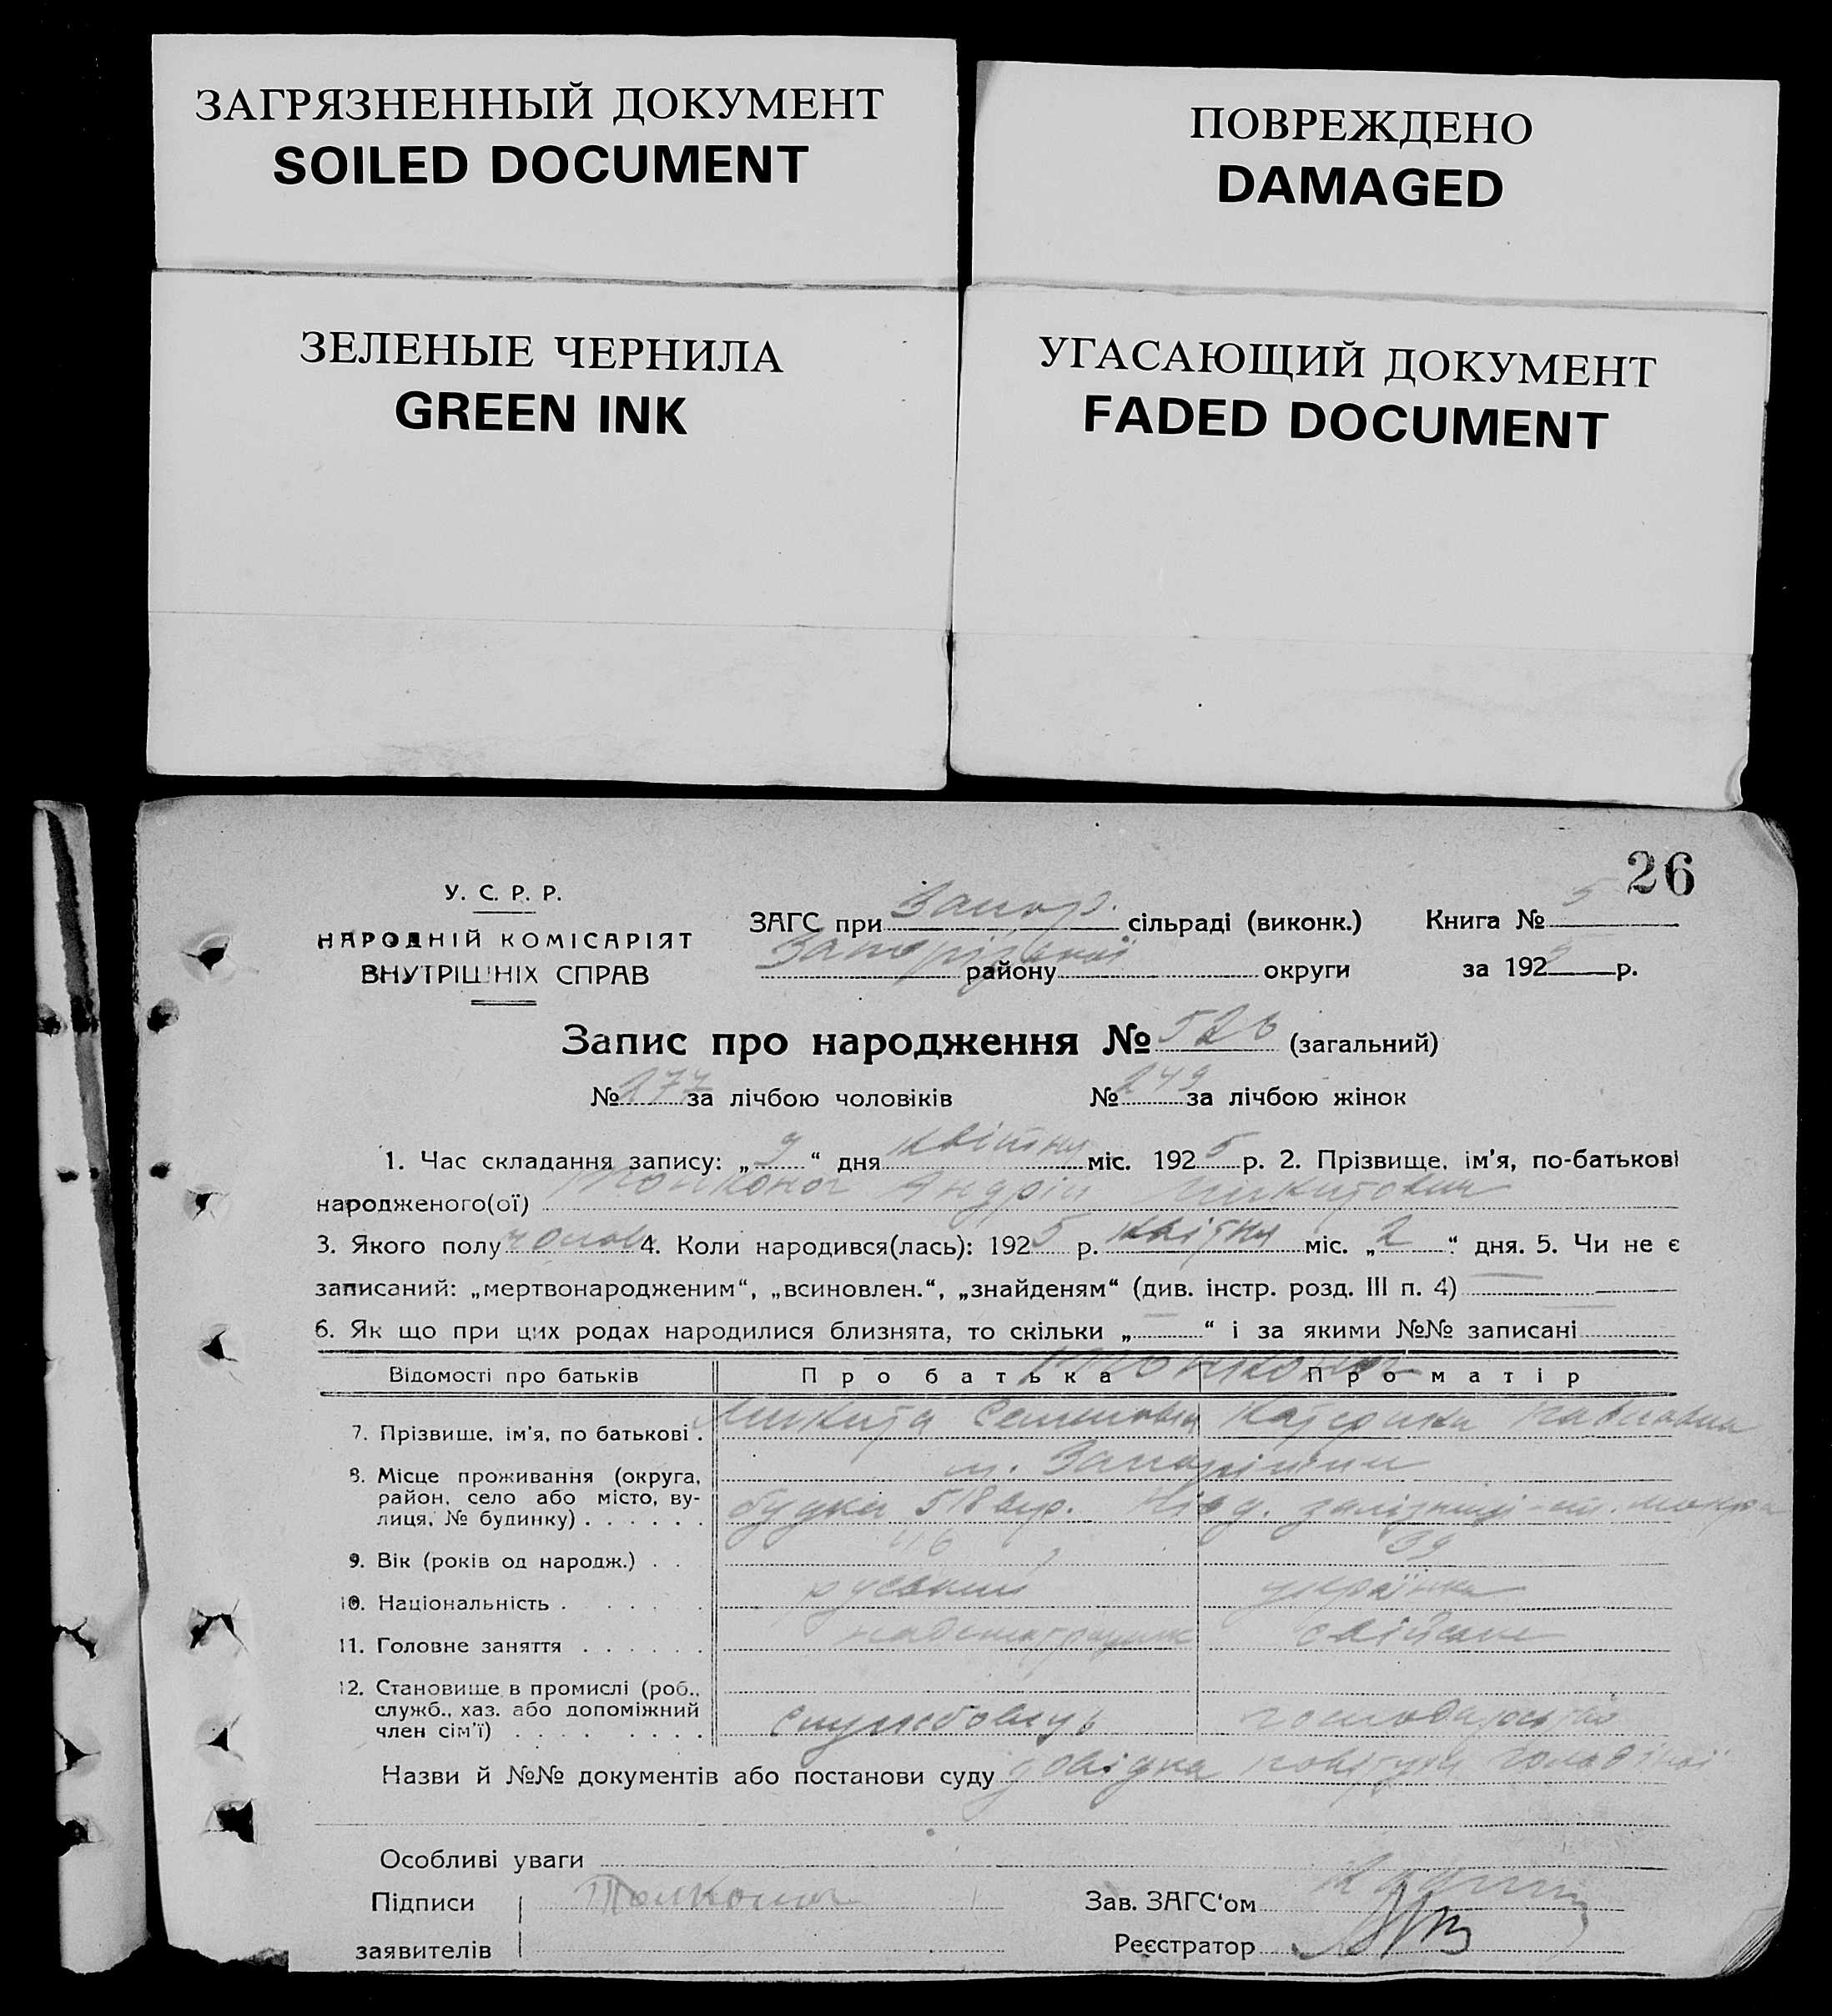 ЗАГРЯЗНЕННЫЙ ДОКУМЕНТ
SOILED DOCUMENT
ПОВРЕЖДЕНО
DAMAGED
ЗЕЛЕНЫЕ ЧЕРНИЛА
GREEN INK
УГАСАЮЩИЙ ДОКУМЕНТ
FADED DOCUMENT
26
У. С. Р. Р.
НАРОДНІЙ КОМІСАРІЯТ
ВНУТРІШНІХ СПРАВ
ЗАГС при Запор. сільраді (виконк.) Книга № 5
Запорізької району округи за 192 р.
Запис про народження № 526 (загальний)
№ 277 за лічбою чоловіків № 249 за лічбою жінок
1. Час складання запису: „9“ дня квітня міс. 1925 р. 2. Прізвище, ім'я, по-батькові
народженого(ої) Андрій Микитович
3. Якого полу чолов 4. Коли народився(лась): 1925 р. квітня міс. „2“ дня. 5. Чи не є
записаний: „мертвонародженим“, „всиновлен.“, „знайденям“ (див. інстр. розд. III п. 4)
6. Як що при цих родах народилися близнята, то скільки „ “ і за якими №№ записані
Відомості про батьків Про батька Про матір
7. Прізвише, ім'я, по батькові Микита Семенович Катерина Павловна
8. Місце проживання (округа, район, село або місто, вулиця, № будинку) м. Запоріжжя
будка 518 вер. залізниці ст. Мокра
9. Вік (років од народж.) 46 39
10. Національність руський українка
11. Головне заняття
12. Становище в промислі (роб., служб., хаз. або допоміжний член сім'ї) службовець господарство
Назви й №№ документів або постанови суду довідка
Особливі уваги
Підписи
заявителів
Зав. ЗАГС'ом
Реєстратор